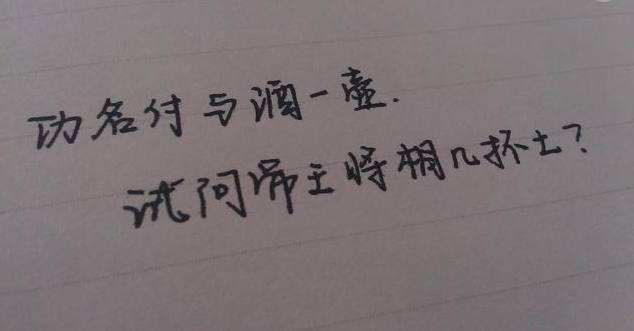 功名付与酒一壶.
试问帝王将相几抔土?